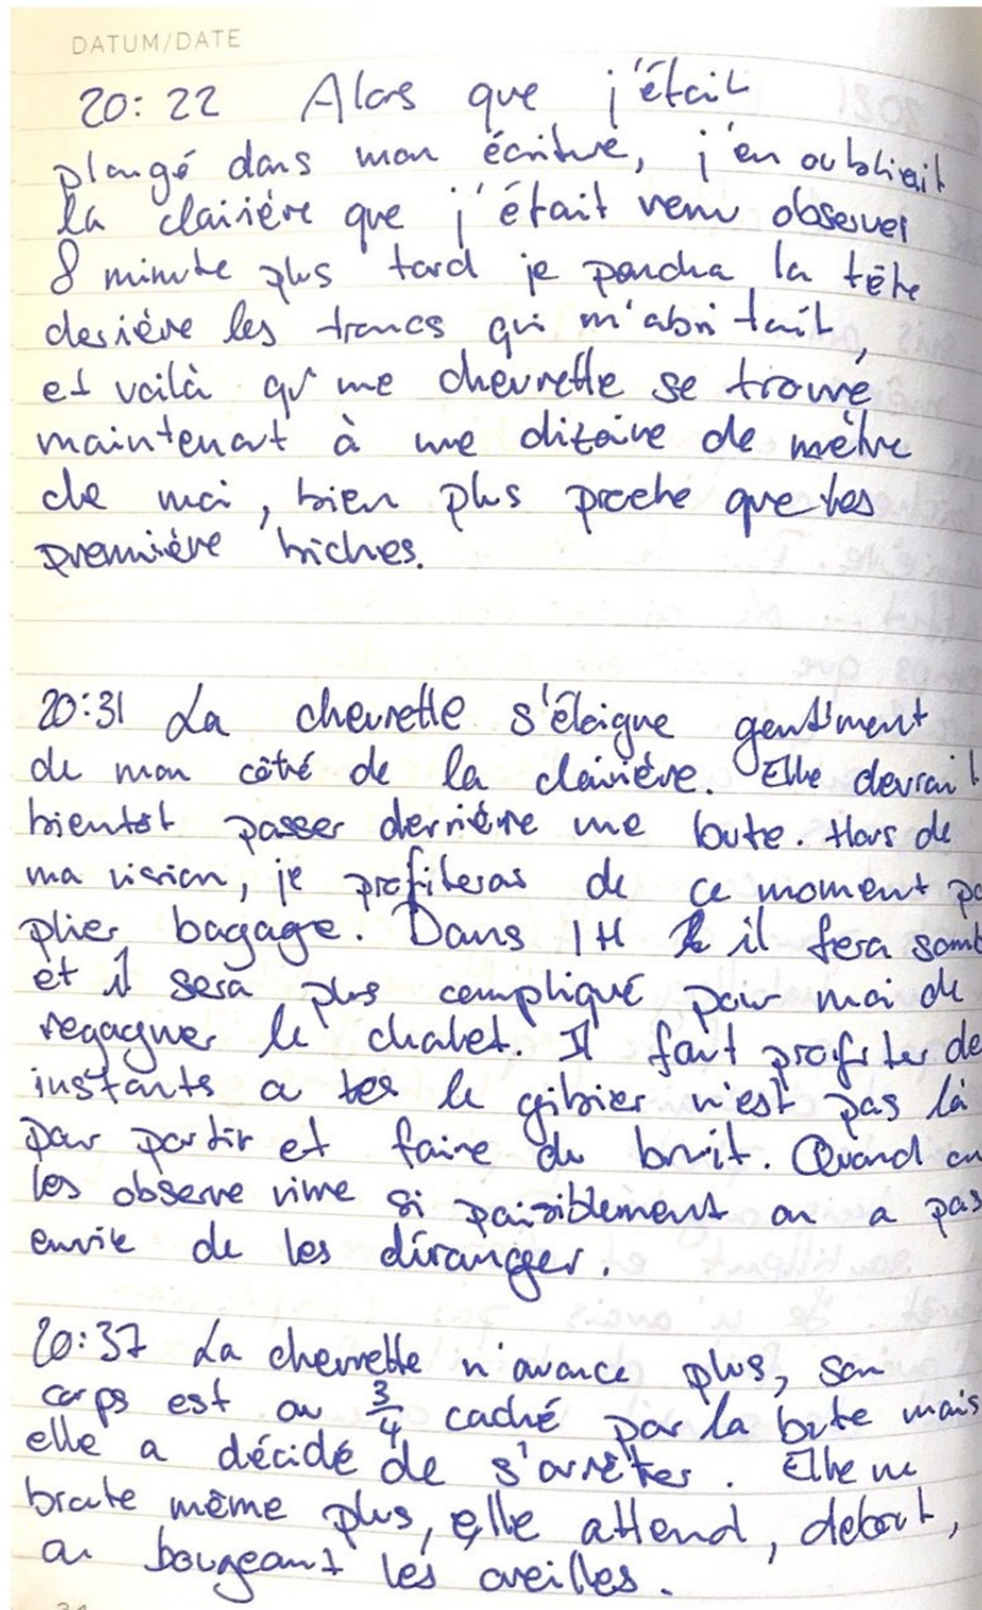 DATUM/DATE
20:22 Alors que j'était
plongé dans mon écriture, j'en oubliait
la clairière que j'était venu observer
8 minute plus tard je pencha la tête
derière les troncs qui m'abritait,
et voilà qu'une chevrette se trouve
maintenant à une dizaine de mètre
de moi, bien plus proche que les
première biches.
20:31 La chevrette s'éloigne gentiment
de mon côté de la clairière. Elle devrait
bientôt passer derrière une bute. Hors de
ma vision, je profiteras de ce moment po
plier bagage. Dans 1H il fera somb
et il sera plus compliqué pour moi de
regagner le chalet. Il faut profiter de
instants où le gibier n'est pas là
pour partir et faire du bruit. Quand on
les observe vivre si paisiblement on a pas
envie de les déranger.
20:37 La chevrette n'avance plus, son
corps est au 3/4 caché par la bute mais
elle a décidé de s'arrêter. Elle ne
broute même plus, elle attend, debout,
en bougeant les oreilles.